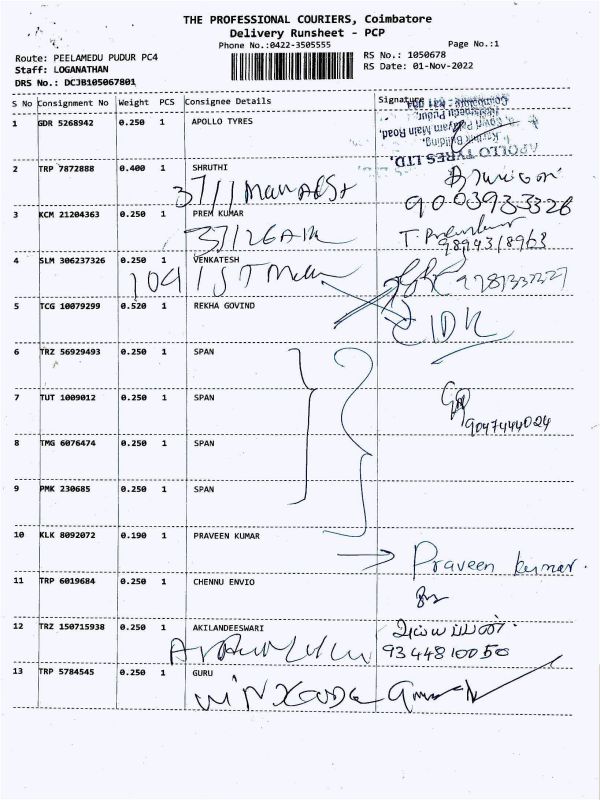 THE PROFESSIONAL COURIERS, Coimbatore
Delivery Runsheet - PCP
Phone No.:0422-3505555
Page No.:1
Route: PEELAMEDU PUDUR PC4
Staff: LOGANATHAN
DRS No.: DCJB105067801
RS No.: 1050678
RS Date: 01-Nov-2022
S No Consignment No Weight PCS Consignee Details Signature
1 GDR 5268942 0.250 1 APOLLO TYRES
APOLLO TYRES LTD,
Building,
Main Road,
Pudur,
2 TRP 7872888 0.400 1 SHRUTHI
9003933328
3 KCM 21204363 0.250 1 PREM KUMAR
T. Premkumar
9894318963
4 SLM 306237326 0.250 1 VENKATESH
5 TCG 10079299 0.520 1 REKHA GOVIND
6 TRZ 56929493 0.250 1 SPAN
7 TUT 1009012 0.250 1 SPAN
9047444024
8 TMG 6076474 0.250 1 SPAN
9 PMK 230685 0.250 1 SPAN
10 KLK 8092072 0.190 1 PRAVEEN KUMAR
Praveen kumar.
11 TRP 6019684 0.250 1 CHENNU ENVIO
12 TRZ 150715938 0.250 1 AKILANDEESWARI
9344810050
13 TRP 5784545 0.250 1 GURU